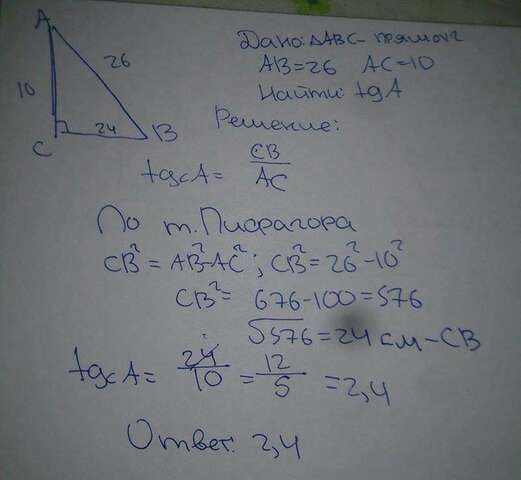 A
26
10
24
B
C
Дано: ΔABC - прямоуг
AB=26 AC=10
Найти: tgA
Решение:
tg<A = CB/AC
По т. Пифагора
CB² = AB²-AC²; CB²=26²-10²
CB² = 676-100=576
√576 = 24 см - CB
tg<A = 24/10 = 12/5 = 2,4
Ответ: 2,4